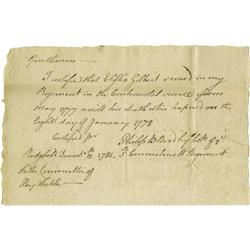 Gentlemen
I certify that Elisha Gilbert served in my
Regiment in the Continental service from
May 1777 untill his death which hapned on the
Eight day of January 1778
Certified pr
Philip B Bradley Coll
Ridgefield 1782 5 Connecticutt Regiment
To the Committee of
Pay Table